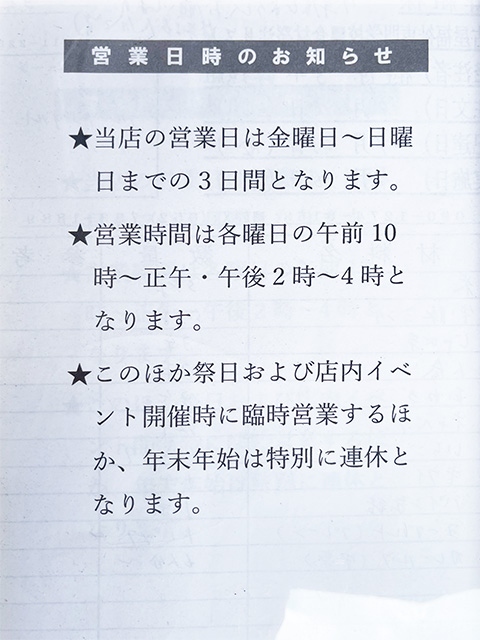 営業日時のお知らせ
★当店の営業日は金曜日～日曜
日までの３日間となります。
★営業時間は各曜日の午前 10
時～正午・午後２時～4 時と
なります。
★このほか祭日および店内イベ
ント開催時に臨時営業するほ
か、年末年始は特別に連休と
なります。